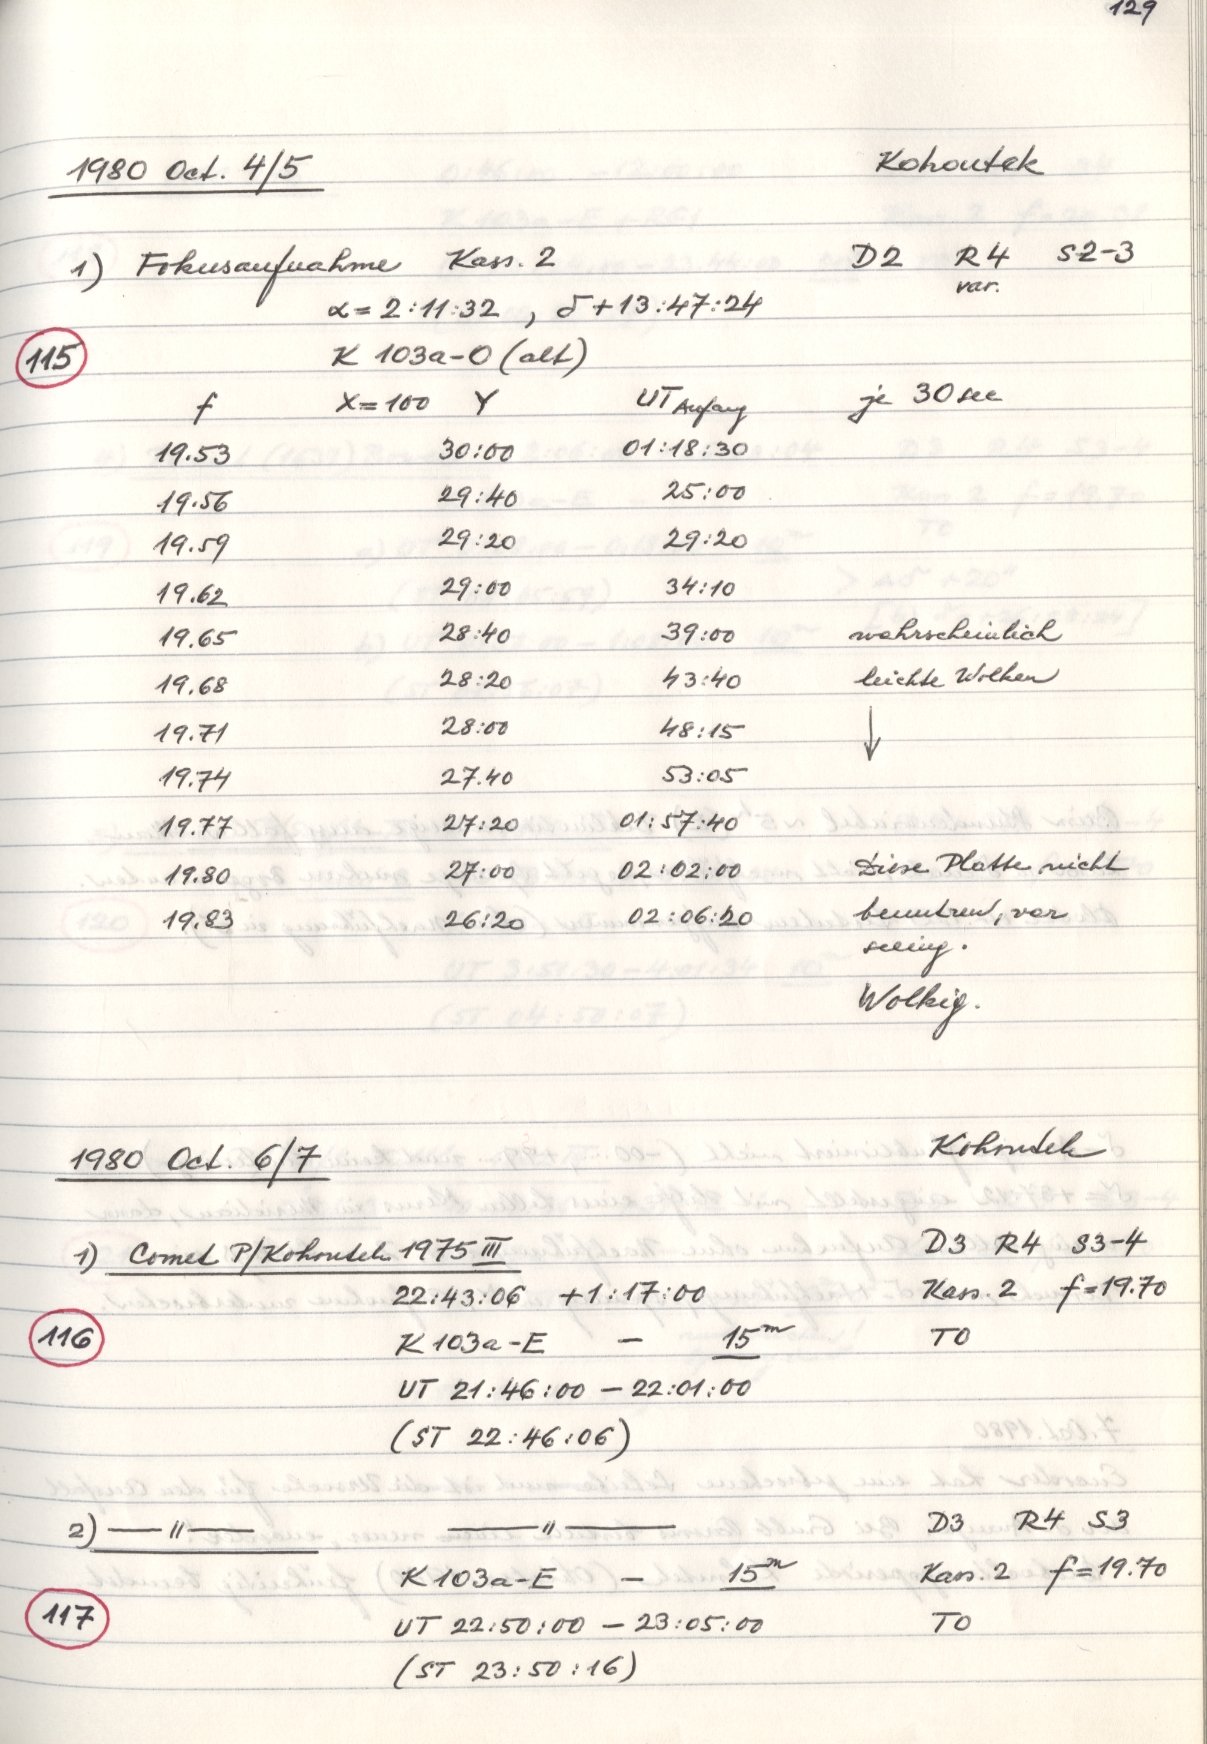 129
1980 Oct. 4/5 Kohoutek
1) Fokusaufnahme Kass. 2 D2 R4 S2-3
var.
α = 2:11:32 , δ + 13:47:24
115 K 103a-O (alt)
f X=100 Y UT Anfang je 30 sec
19.53 30:00 01:18:30
19.56 29:40 25:00
19.59 29:20 29:20
19.62 29:00 34:10
19.65 28:40 39:00 wahrscheinlich
19.68 28:20 43:40 leichte Wolken
19.71 28:00 48:15 ↓
19.74 27.40 53:05
19.77 27:20 01:57:40
19.80 27:00 02:02:00 Diese Platte nicht
19.83 26:20 02:06:20 benutzen, var
seeing.
Wolkig.
1980 Oct. 6/7 Kohoutek
1) Comet P/Kohoutek 1975 III D3 R4 S3-4
22:43:06 +1:17:00 Kass. 2 f=19.70
116 K 103a-E — 15m TO
UT 21:46:00 – 22:01:00
(ST 22:46:06)
2) — " — — " — D3 R4 S3
K 103a-E — 15m Kass. 2 f=19.70
117 UT 22:50:00 – 23:05:00 TO
(ST 23:50:16)